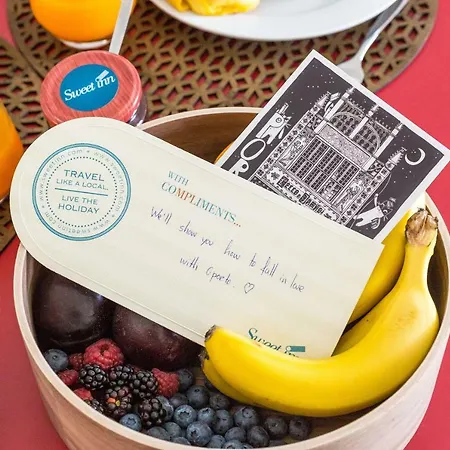 Sweet inn
www.sweetinn.com
TRAVEL
LIKE A LOCAL.
LIVE THE
HOLIDAY
WITH
COMPLIMENTS...
We'll show you how to fall in love
with Oporto. ♡
Sweet inn